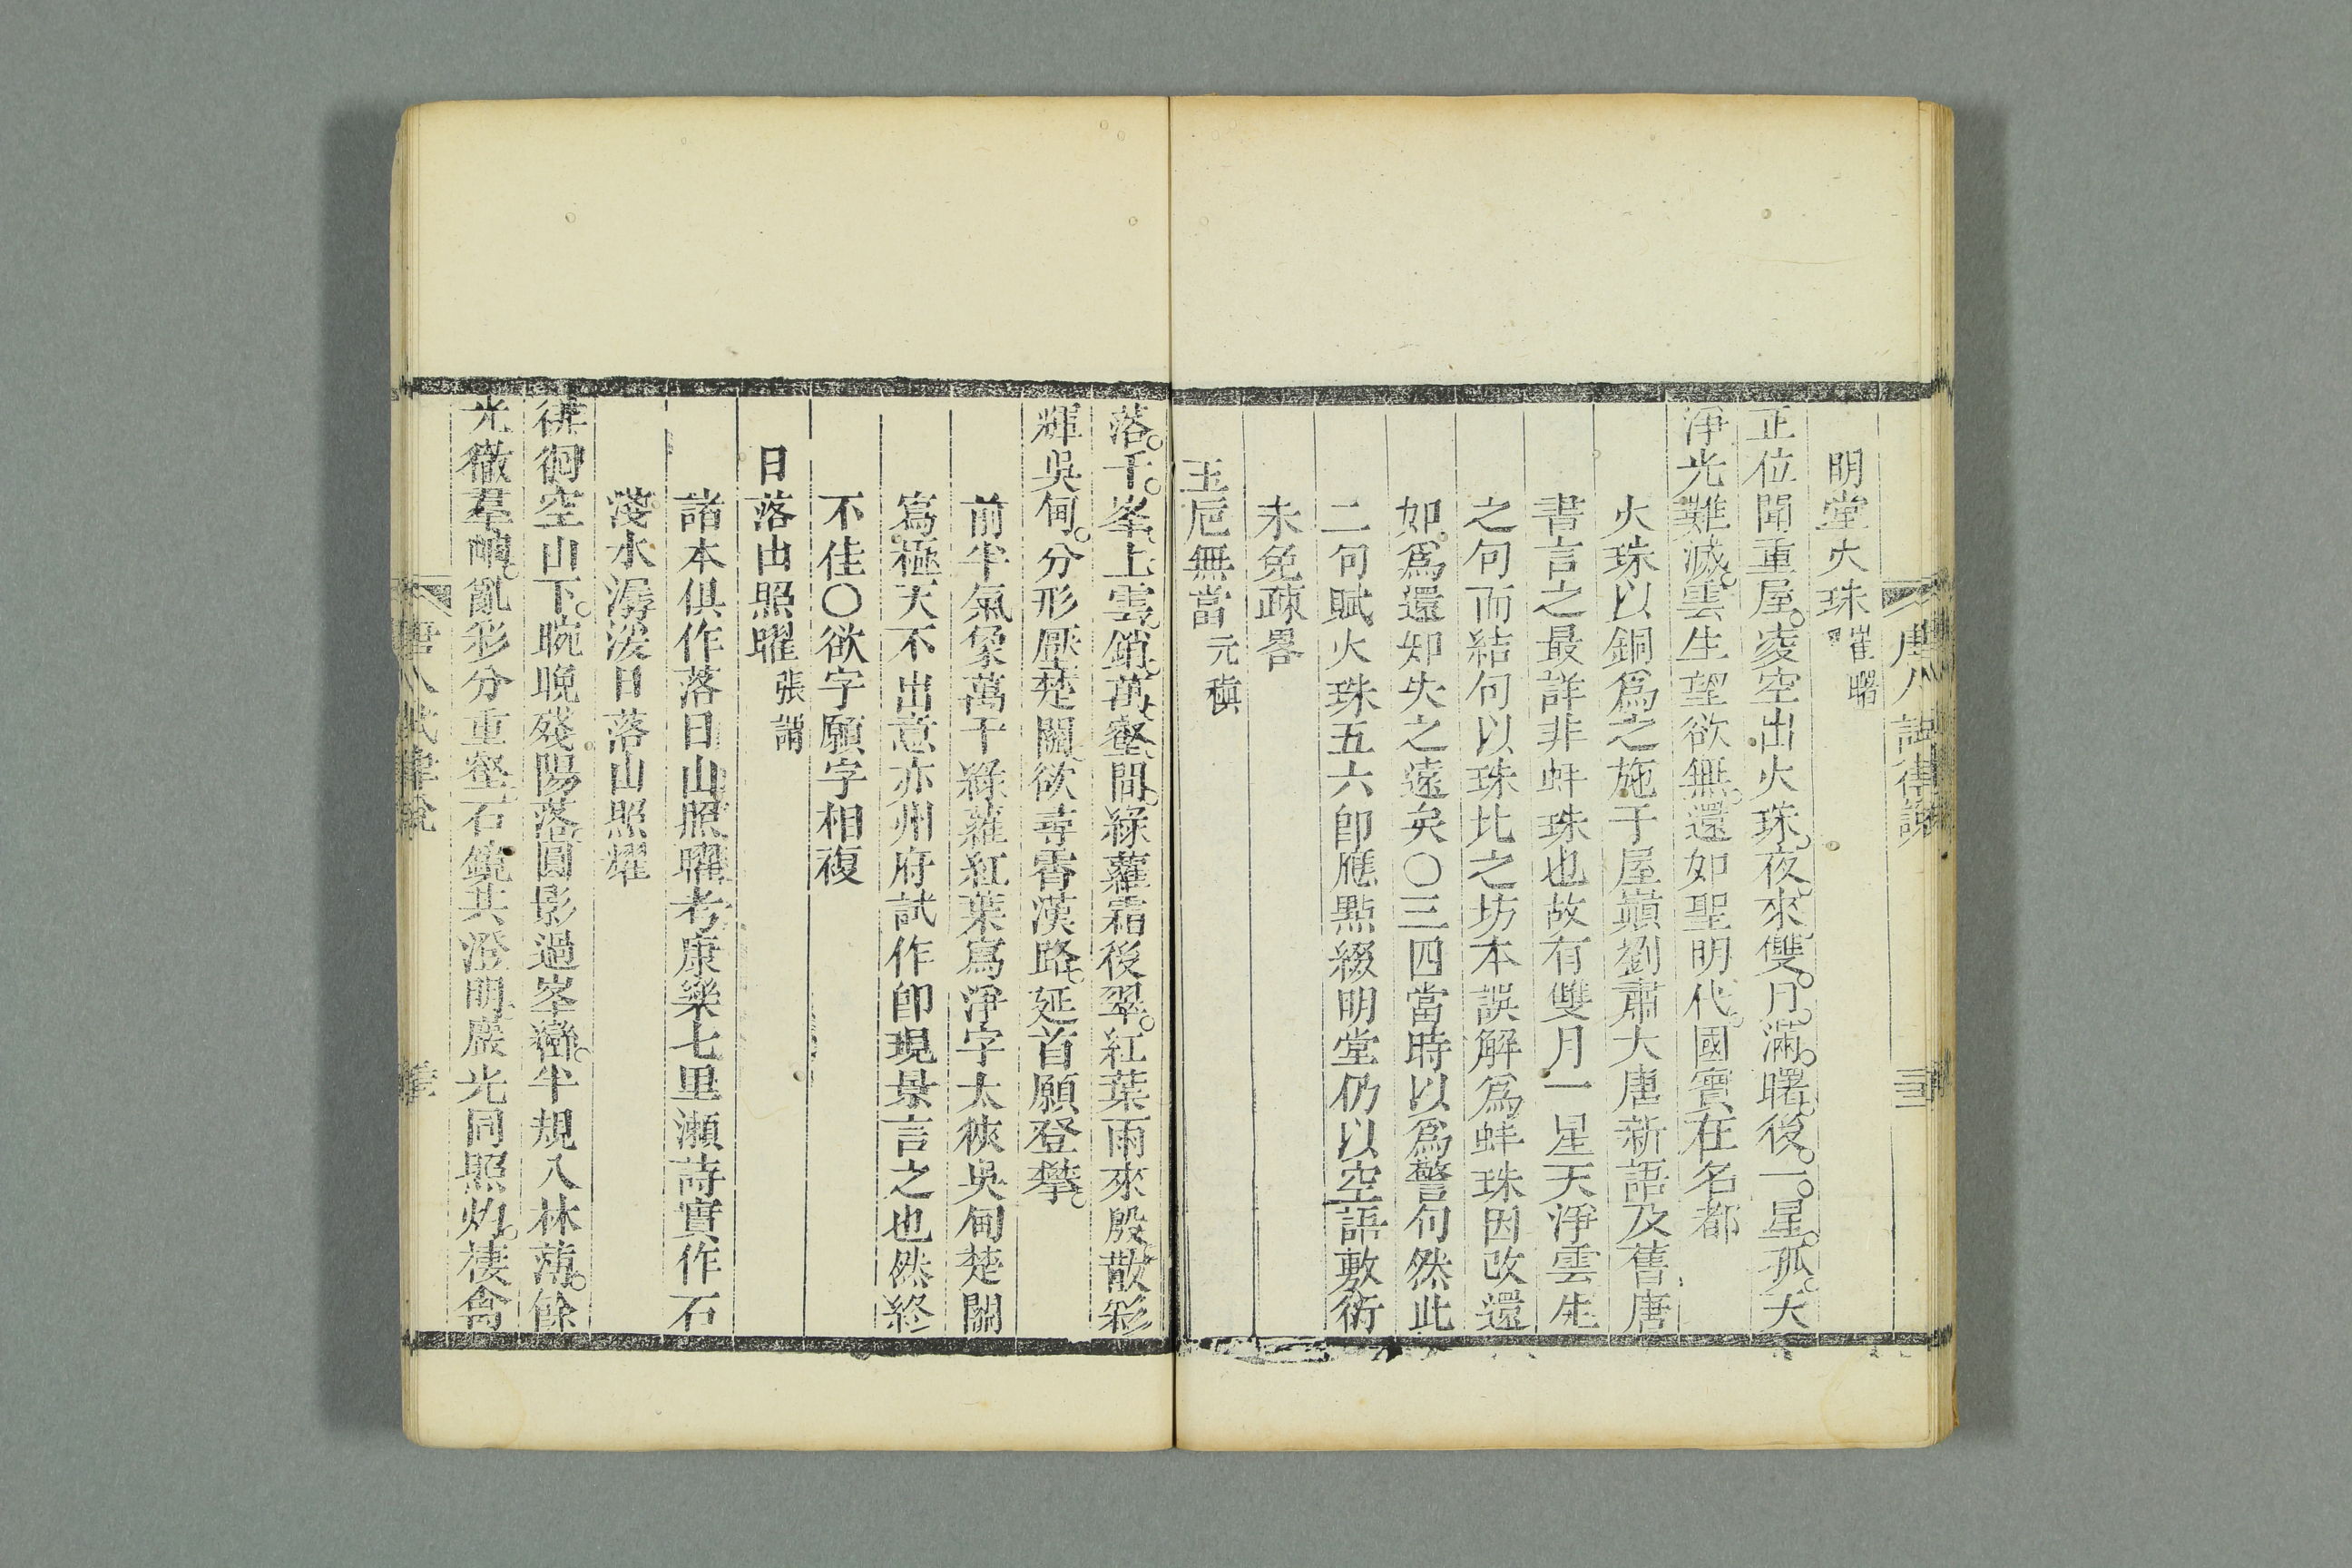 唐人試律說
三
明堂火珠 崔曙
正位開重屋凌空出火珠夜來雙月滿曙後一星孤天
淨光難滅雲生望欲無還如聖明代國寶在名都
火珠以銅爲之施于屋巔劉肅大唐新語及舊唐
書言之最詳非蚌珠也故有雙月一星天淨雲生
之句而結句以珠比之坊本誤解爲蚌珠因改還
如爲還知失之遠矣〇三四當時以爲警句然此
二句賦火珠五六卽應點綴明堂仍以空語敷衍
未免疎畧
玉巵無當 元稹
落千峯上雲銷萬壑間綠蘿霜後翠紅葉雨來殷散彩
輝吳甸分形壓楚關欲尋霄漢路延首願登攀
前半氣象萬千綠蘿紅葉寫淨字太狹吳甸楚關
寫極大不出意亦州府試作卽現景言之也然終
不佳〇欲字願字相複
日落山照曜 張謂
諸本俱作落日山照曜考康樂七里瀨詩實作石
淺水潺湲日落山照耀
徘徊空山下晼晚殘陽落圓影過峯巒半規入林薄餘
光徹羣岫亂彩分重壑石鏡共澄明巖光同照灼棲禽
唐人試律說